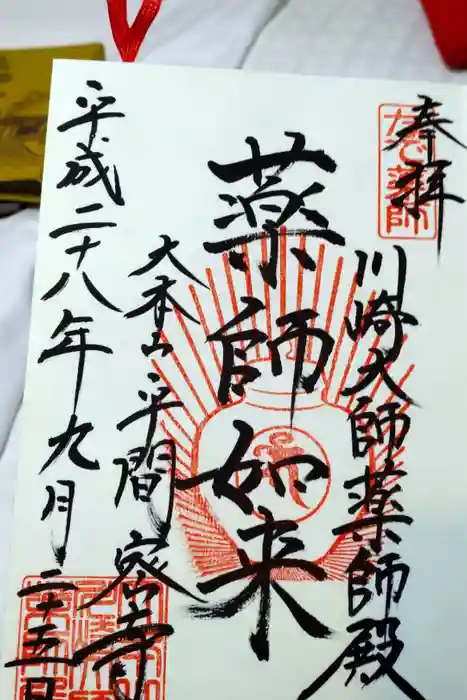 奉拝
なで薬師
川崎大師薬師殿
薬師如来
大本山平間密寺
平成二十八年九月二十五日